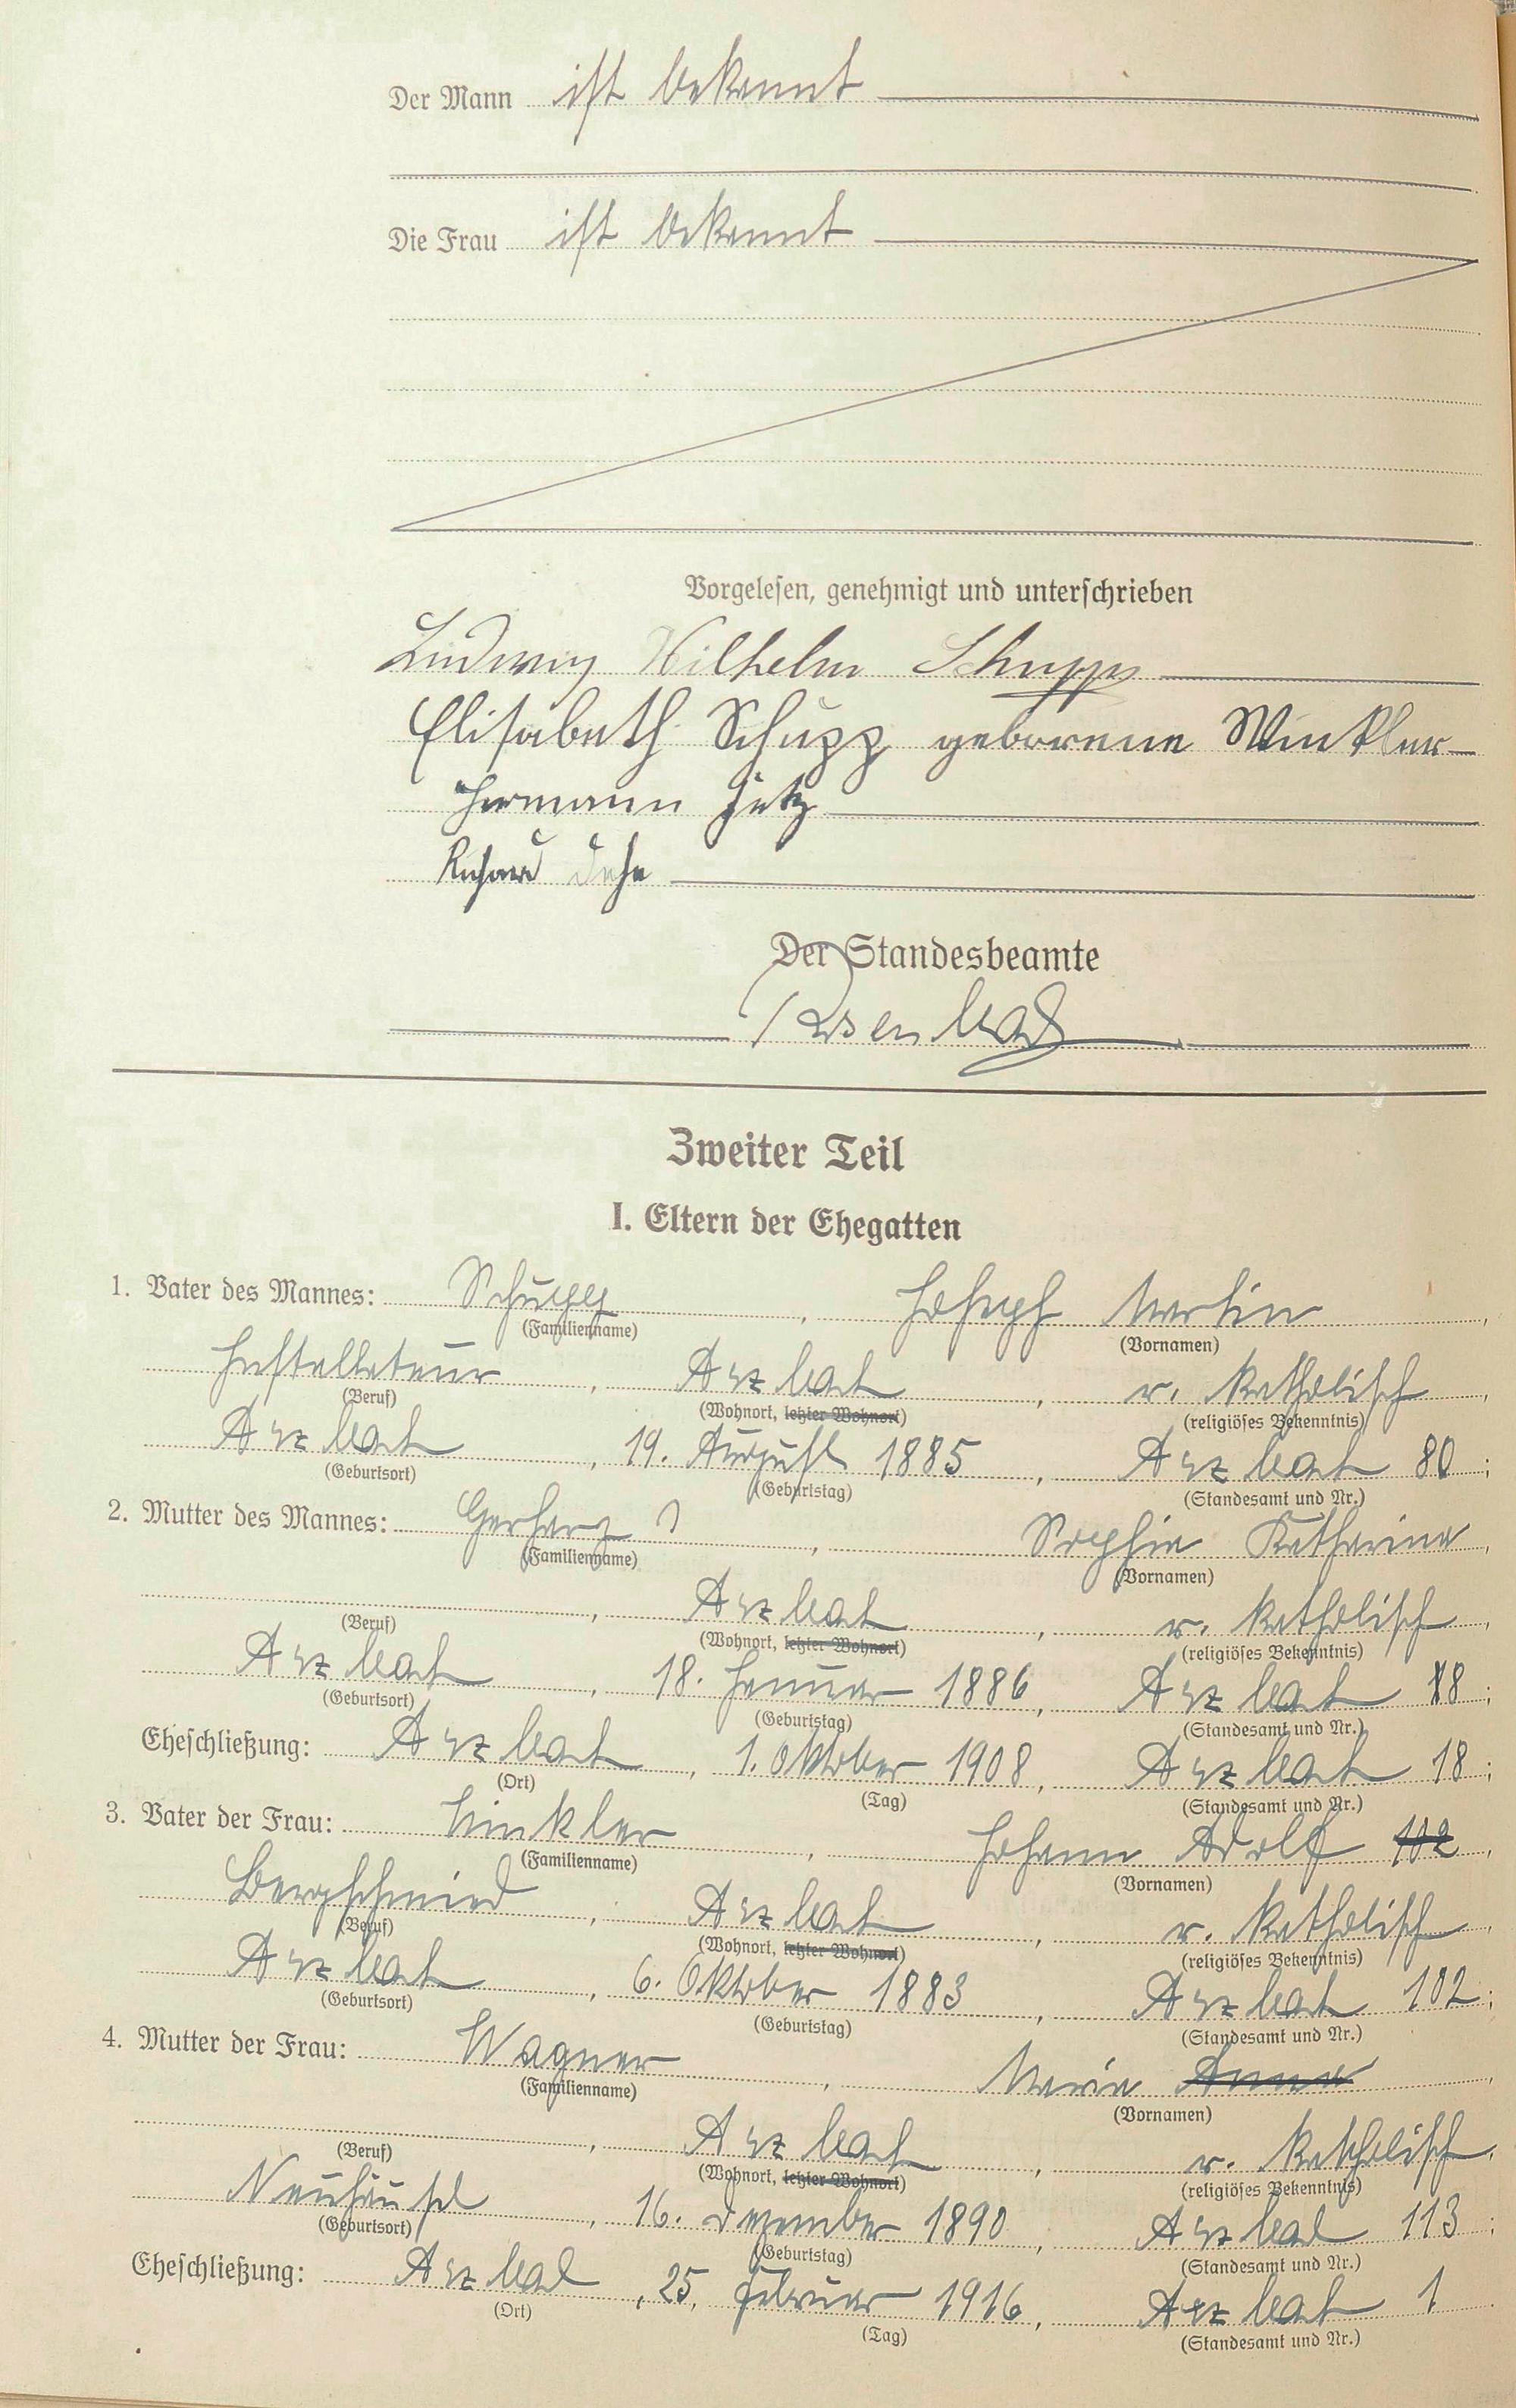 Der Mann ist bekannt
Die Frau ist bekannt
Vorgelesen, genehmigt und unterschrieben
Ludwig Wilhelm Schupp
Elisabeth Schupp geborene Winkler
Hermann
Richard
Der Standesbeamte
Zweiter Teil
I. Eltern der Ehegatten
1. Vater des Mannes: Schupp, Joseph Martin,
(Familienname) (Vornamen)
Installateur, Arzbach, r. katholisch,
(Beruf) (Wohnort, letzter Wohnort) (religiöses Bekenntnis)
Arzbach, 19. August 1885, Arzbach 80;
(Geburtsort) (Geburtstag) (Standesamt und Nr.)
2. Mutter des Mannes: Gerharz, Sophie Katharina,
(Familienname) (Vornamen)
, Arzbach, r. katholisch,
(Beruf) (Wohnort, letzter Wohnort) (religiöses Bekenntnis)
Arzbach, 18. Januar 1886, Arzbach 18;
(Geburtsort) (Geburtstag) (Standesamt und Nr.)
Eheschließung: Arzbach, 1. Oktober 1908, Arzbach 18;
(Ort) (Tag) (Standesamt und Nr.)
3. Vater der Frau: Winkler, Johann Adolf 102,
(Familienname) (Vornamen)
Bergschmied, Arzbach, r. katholisch,
(Beruf) (Wohnort, letzter Wohnort) (religiöses Bekenntnis)
Arzbach, 6. Oktober 1883, Arzbach 102;
(Geburtsort) (Geburtstag) (Standesamt und Nr.)
4. Mutter der Frau: Wagner, Maria Anna,
(Familienname) (Vornamen)
, Arzbach, r. katholisch,
(Beruf) (Wohnort, letzter Wohnort) (religiöses Bekenntnis)
Neuhäusel, 16. Dezember 1890, Arzbach 113;
(Geburtsort) (Geburtstag) (Standesamt und Nr.)
Eheschließung: Arzbach, 25. Februar 1916, Arzbach 1.
(Ort) (Tag) (Standesamt und Nr.)